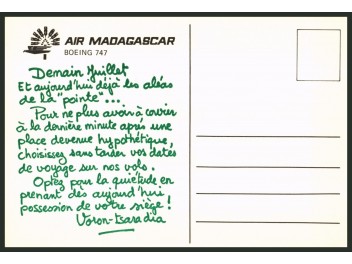 AIR MADAGASCAR
BOEING 747
Demain Juillet
Et aujourd'hui déjà les aléas
de la "pointe"...
Pour ne plus avoir à courir
à la dernière minute après une
place devenue hypothétique,
choisissez sans tarder vos dates
de voyage sur nos vols.
Optez pour la quiétude en
prenant dès aujourd'hui
possession de votre siège !
Voron-tsaradia